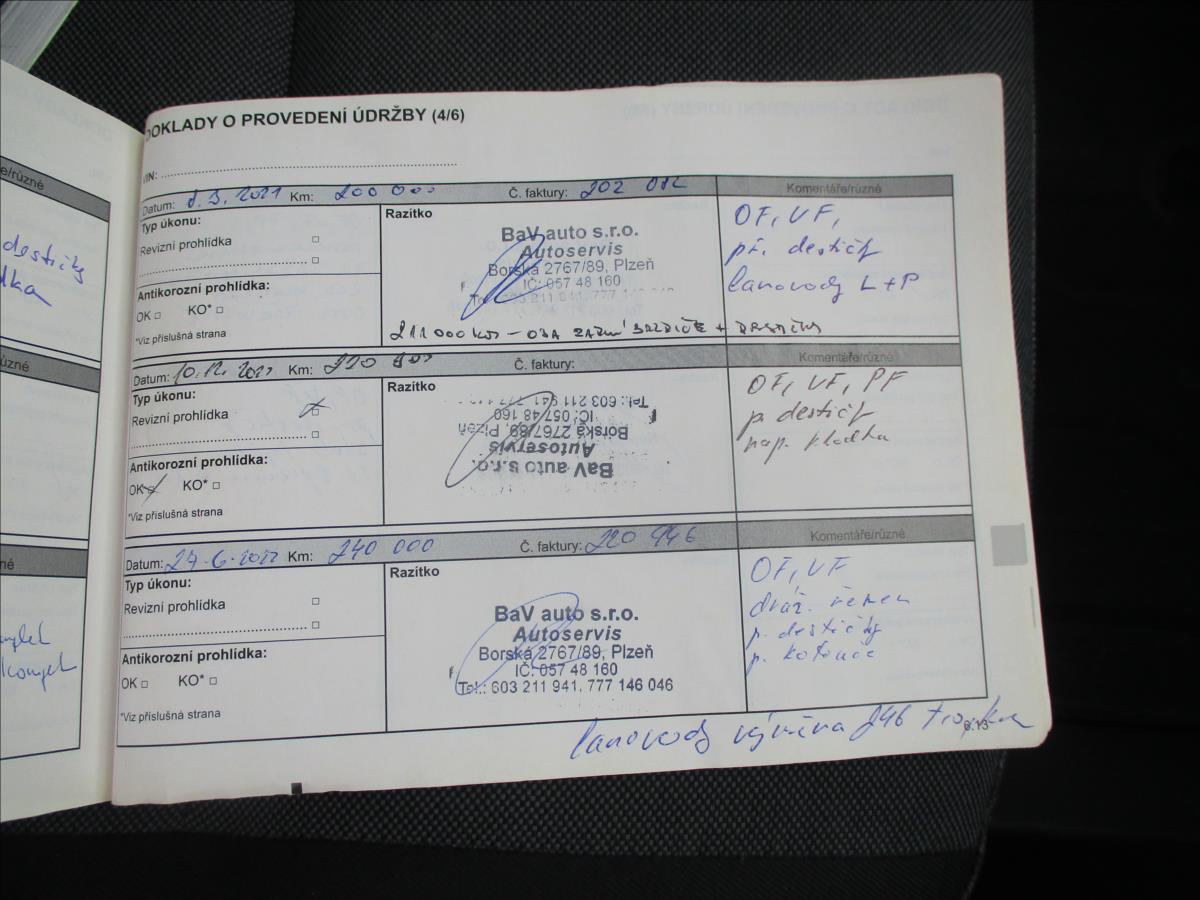 DOKLADY O PROVEDENÍ ÚDRŽBY (4/6)
VIN:
Datum: 8.3.2021 Km: 200 000 Č. faktury: 202 012 Komentáře/různé
Typ úkonu:
Revizní prohlídka
Antikorozní prohlídka:
OK KO*
*Viz příslušná strana
Razítko
BaV auto s.r.o.
Autoservis
Borská 2767/89, Plzeň
IČ: 057 48 160
Tel.: 603 211 941, 777 146 046
211 000 km - OBA ZADNÍ BRZDIČE + DESTIČKY
OF, VF,
př. destičk
lanovody L+P
Datum: 10.12. Km: Č. faktury: Komentáře/různé
Typ úkonu:
Revizní prohlídka
Antikorozní prohlídka:
OK KO*
*Viz příslušná strana
Razítko
BaV auto s.r.o.
Autoservis
Borská 2767/89, Plzeň
IČ: 057 48 160
Tel.: 603 211 941, 777
OF, VF, PF
p. destičk
nap. kladka
Datum: 27.6.2022 Km: 240 000 Č. faktury: 220 946 Komentáře/různé
Typ úkonu:
Revizní prohlídka
Antikorozní prohlídka:
OK KO*
*Viz příslušná strana
Razítko
BaV auto s.r.o.
Autoservis
Borská 2767/89, Plzeň
IČ: 057 48 160
Tel.: 603 211 941, 777 146 046
OF, VF
dráž. řemen
p. destičky
p. kotouče
lanovody výměna 246
6.13
e/různé
destičky
různé
né
komplet